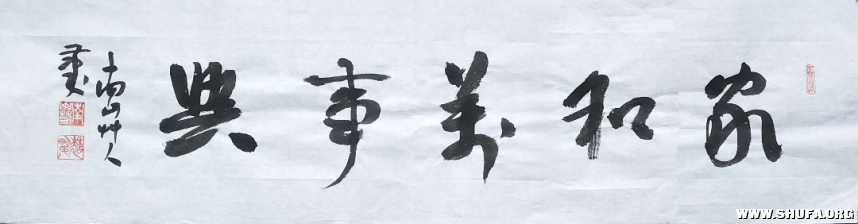 家和萬事興
南山艸人
WWW.SHUFA.ORG